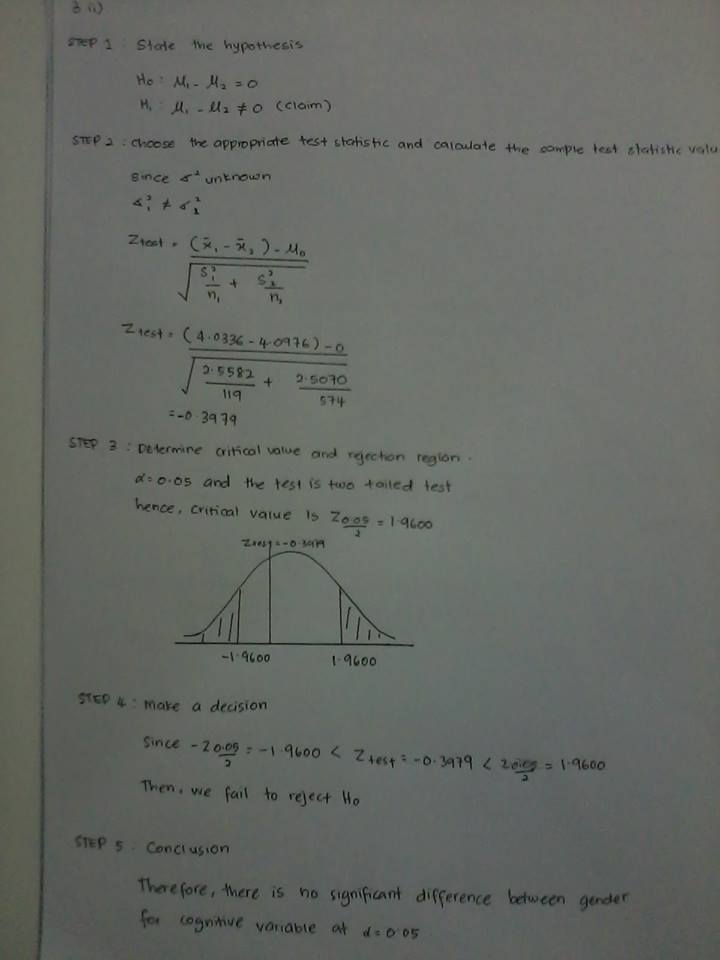 3 ii)
STEP 1 : State the hypothesis
H₀ : μ₁ - μ₂ = 0
H₁ : μ₁ - μ₂ ≠ 0 (claim)
STEP 2 : choose the appropriate test statistic and calculate the sample test statistic valu
Since σ² unknown
σ₁² ≠ σ₂²
Ztest = (x̄₁ - x̄₂) - μ₀
√ S₁²/n₁ + S₂²/n₂
Ztest = (4.0336 - 4.0976) - 0
√ 2.5582/119 + 2.5070/574
= -0.3979
STEP 3 : Determine critical value and rejection region.
α = 0.05 and the test is two tailed test
hence, critical value is Z0.05/2 = 1.9600
Ztest = -0.3979
-1.9600 1.9600
STEP 4 : Make a decision
Since -Z0.05/2 = -1.9600 < Ztest = -0.3979 < Z0.05/2 = 1.9600
Then, we fail to reject H₀
STEP 5 : Conclusion
Therefore, there is no significant difference between gender
for cognitive variable at α = 0.05